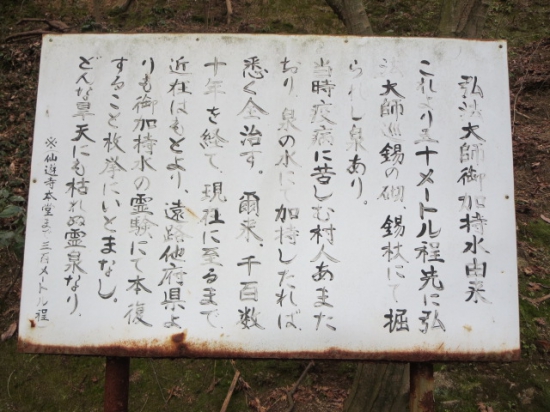 弘法大師御加持水由来
これより五十メートル程先に弘
法大師巡錫の砌、錫杖にて掘
られし泉あり。
当時疫病に苦しむ村人あまた
おり泉の水にて加持したれば、
悉く全治す。爾来、千百数
十年を経て、現在に至るまで、
近在はもとより、遠路他府県よ
りも御加持水の霊験にて本復
すること枚挙にいとまなし。
どんな旱天にも枯れぬ霊泉なり、
※仙遊寺本堂まで三百メートル程